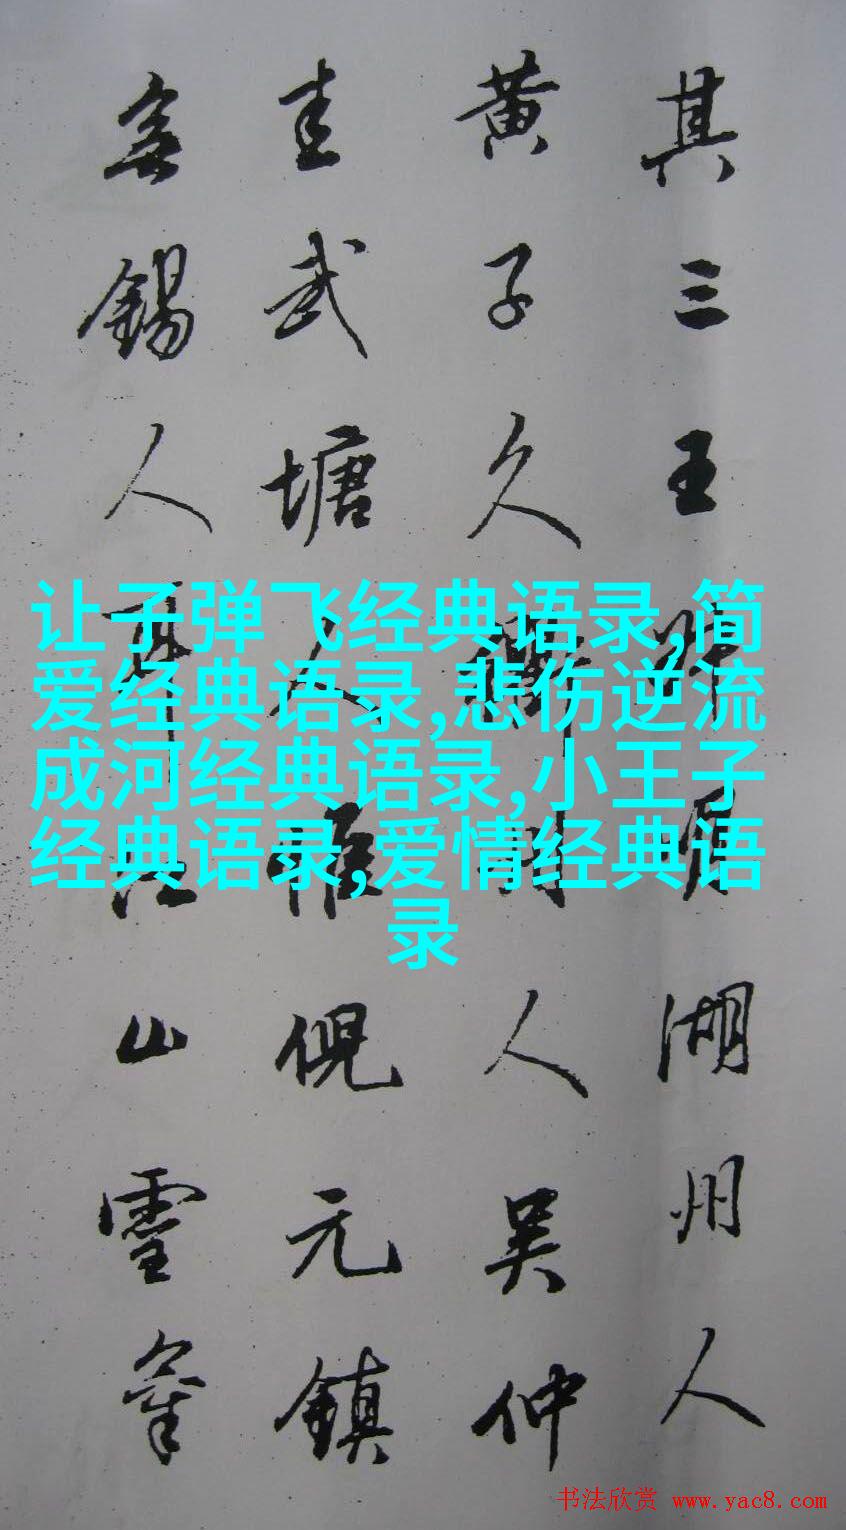 其三王叔明湖州人
黄子久衢州人吴仲
圭武塘人惟倪元镇
無錫人耳江山雪霽
让子弹飞经典语录,简
爱经典语录,悲伤逆流
成河经典语录,小王子
经典语录,爱情经典语
录
书法欣赏 www.yac8.com